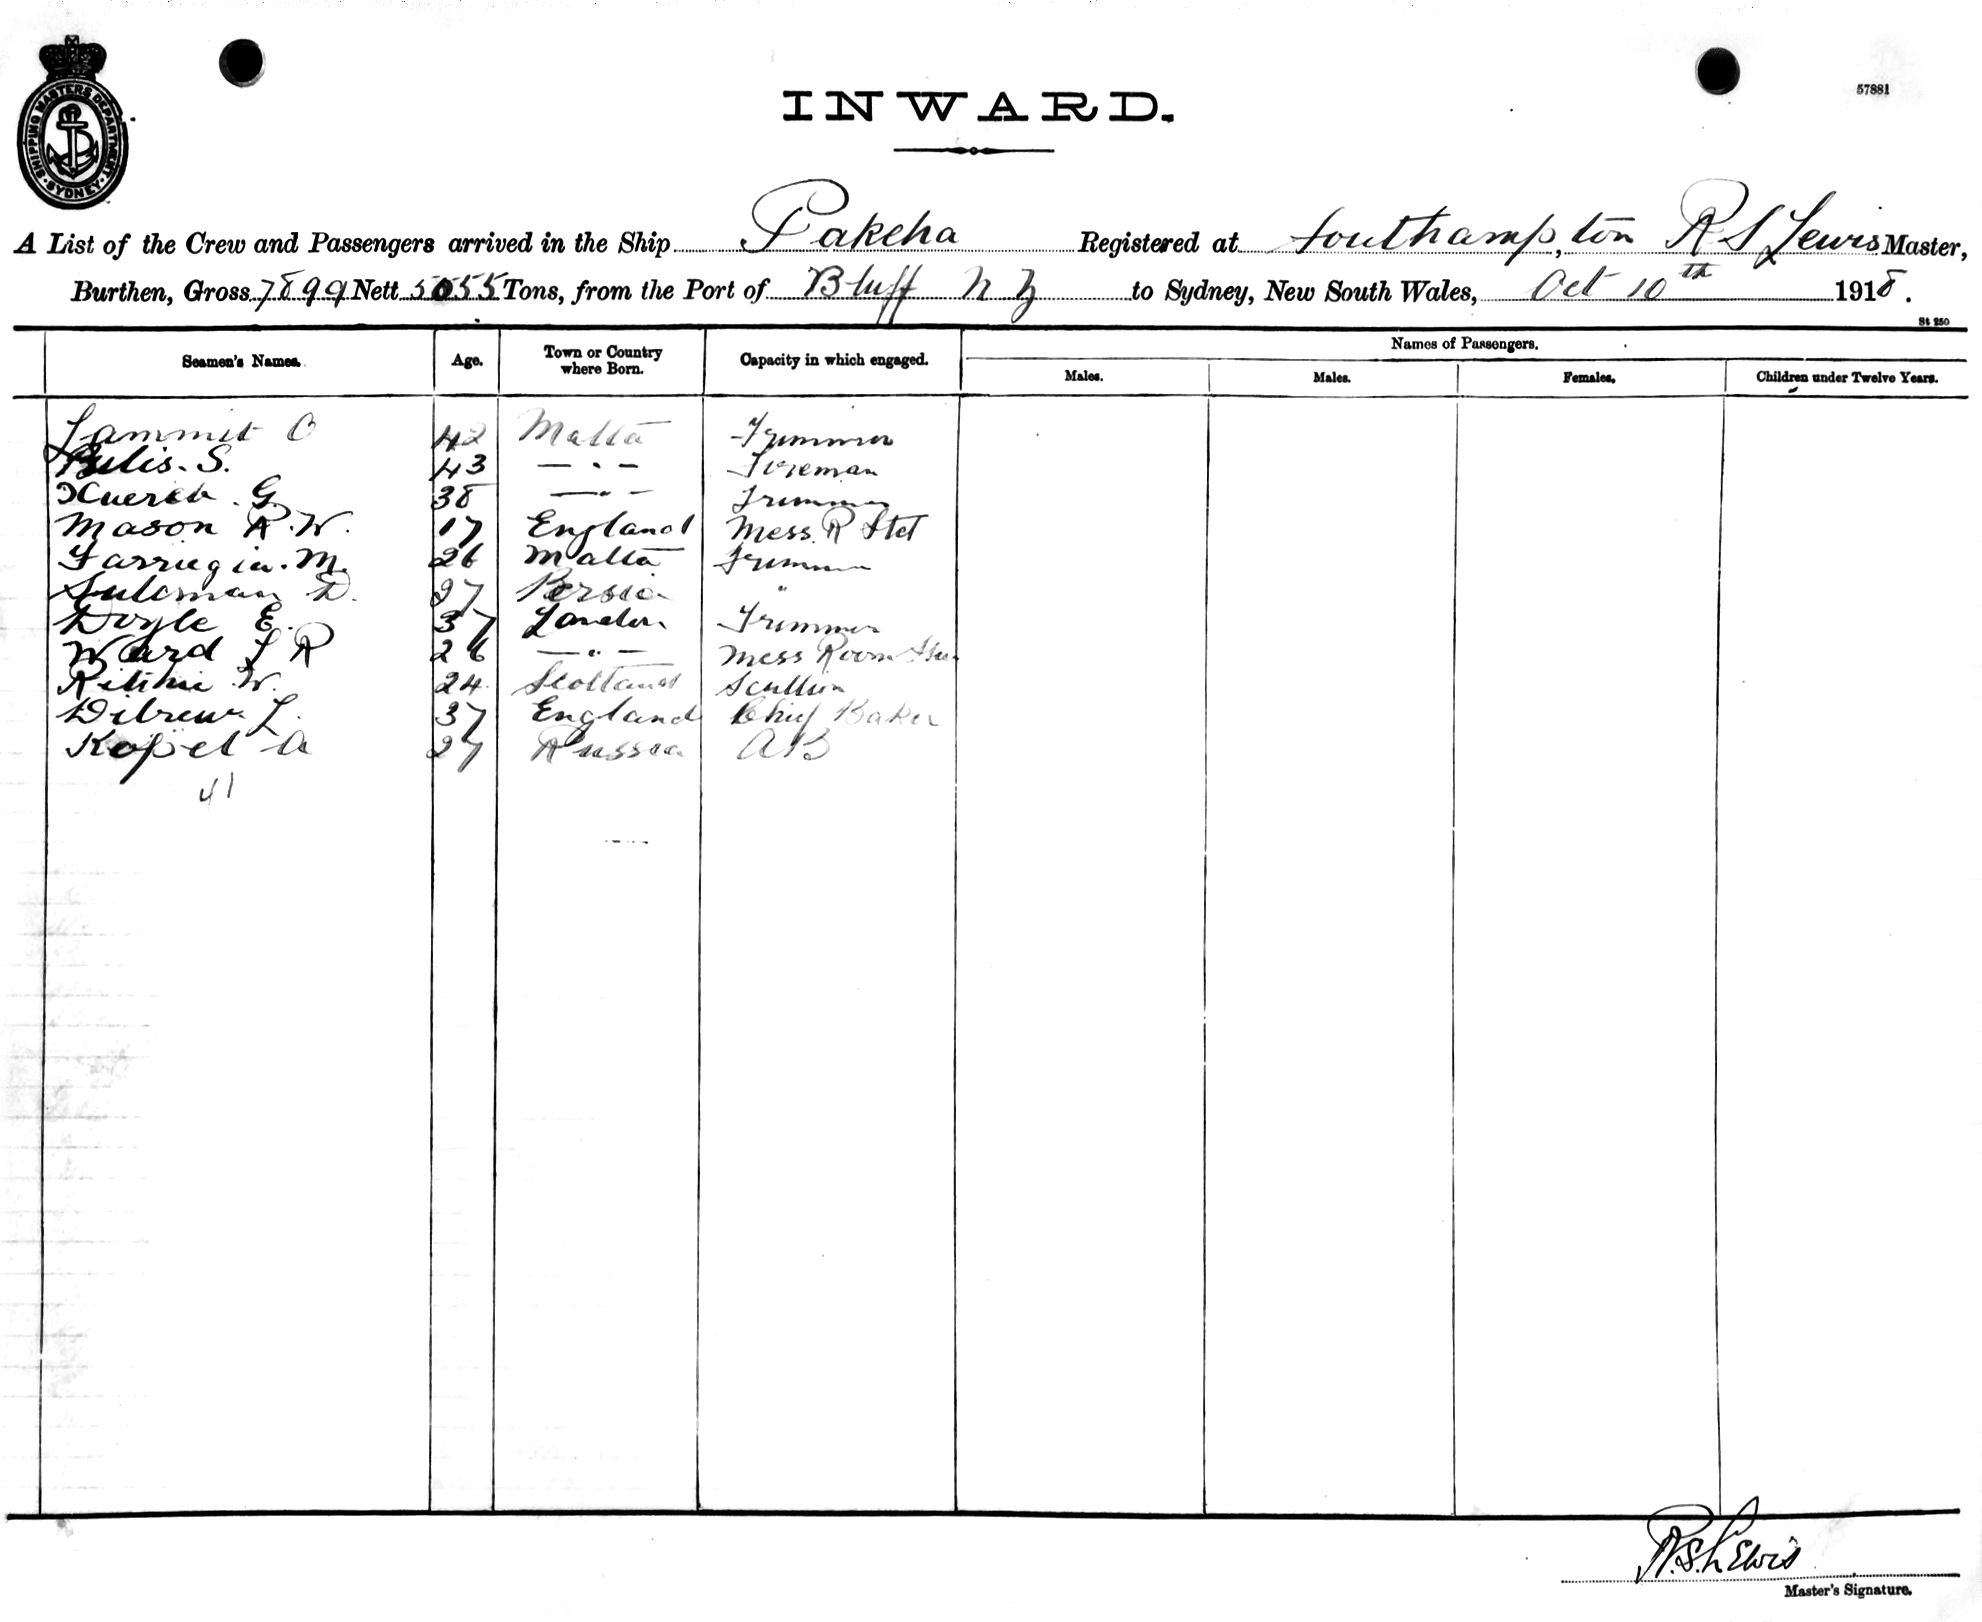 SHIPPING MASTERS DEPARTMENT
SYDNEY
57881
INWARD.
A List of the Crew and Passengers arrived in the Ship Pakeha Registered at Southampton R S Lewis Master,
Burthen, Gross 7899 Nett 5055 Tons, from the Port of Bluff N Z to Sydney, New South Wales, Oct 10th 1918.
St 250
Seamen's Names. Age. Town or Country where Born. Capacity in which engaged. Names of Passengers.
Males. Males. Females. Children under Twelve Years.
Sammit O 42 Malta Trimmer
Bulis. S. 43 — " — Fireman
Xuereb. G. 38 — " — Trimmer
Mason R. W. 17 England Mess. R Std
Farrugia. M. 26 Malta Trimmer
Suleman D. 27 Persia "
Doyle E. 37 London Trimmer
Ward J R 26 — " — Mess Room
Ritchie W. 24 Scotland Scullion
37 England Chief Baker
Kopel A 27 Russia AB
41
R.S. Lewis
Master's Signature.